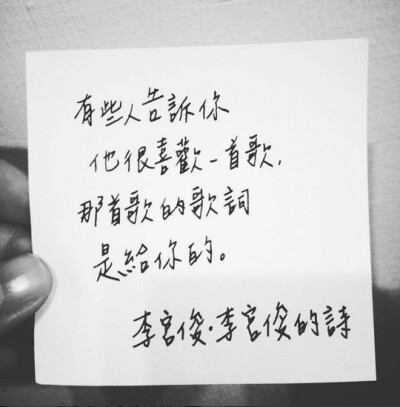 有些人告訴你
他很喜歡一首歌,
那首歌的歌詞
是給你的。
李宮俊·李宮俊的詩